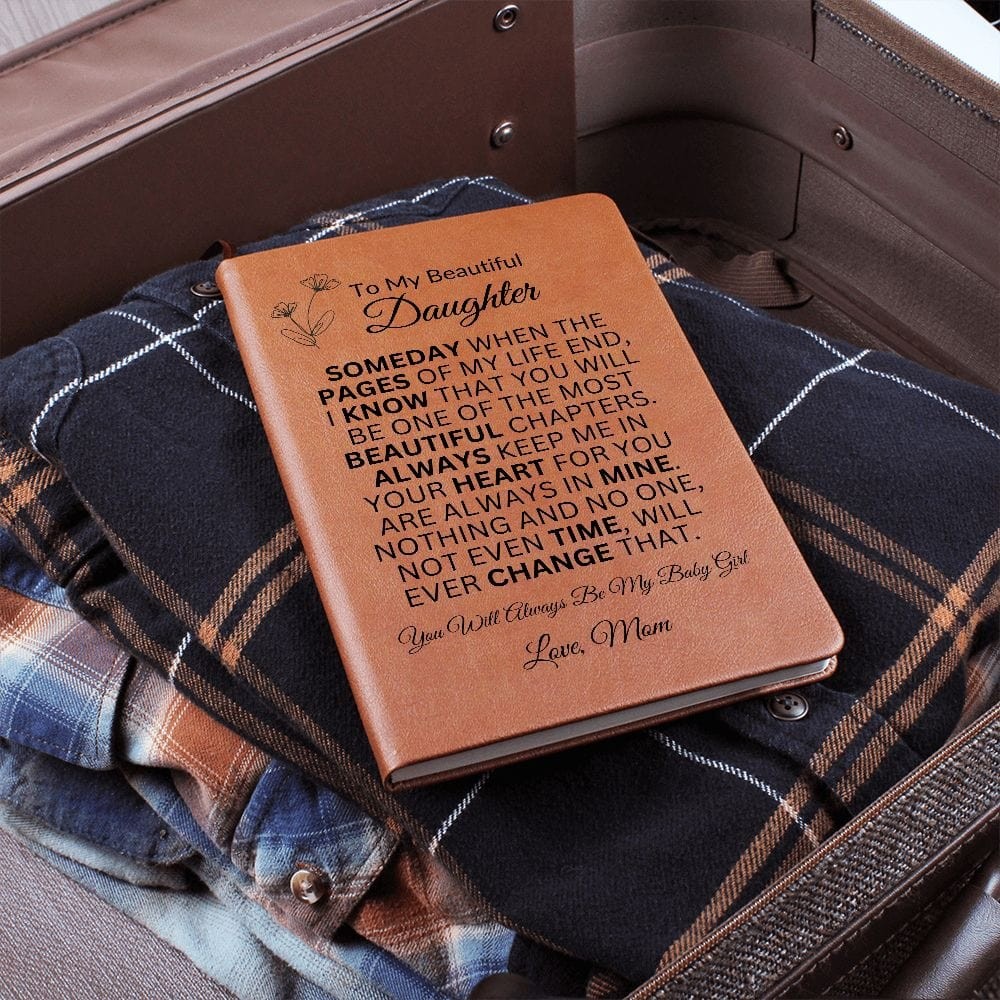 To My Beautiful
Daughter
SOMEDAY WHEN THE
PAGES OF MY LIFE END,
I KNOW THAT YOU WILL
BE ONE OF THE MOST
BEAUTIFUL CHAPTERS.
ALWAYS KEEP ME IN
YOUR HEART FOR YOU
ARE ALWAYS IN MINE.
NOTHING AND NO ONE,
NOT EVEN TIME, WILL
EVER CHANGE THAT.
You Will Always Be My Baby Girl
Love, Mom